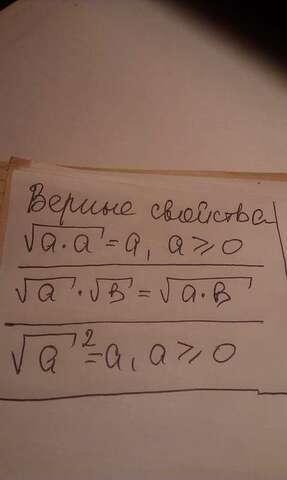 Верные свойства
√a·a = a, a ≥ 0
√a · √в = √a·в
√a² = a, a ≥ 0